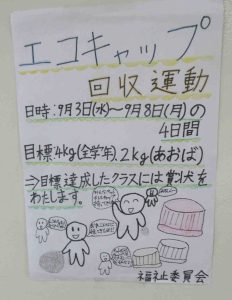 エコキャップ
回収運動
日時:9月3日(水)～9月8日(月)の
4日間
目標4kg(全学年)、2kg(あおば)
⇒目標達成したクラスには賞状を
わたします。
福祉委員会